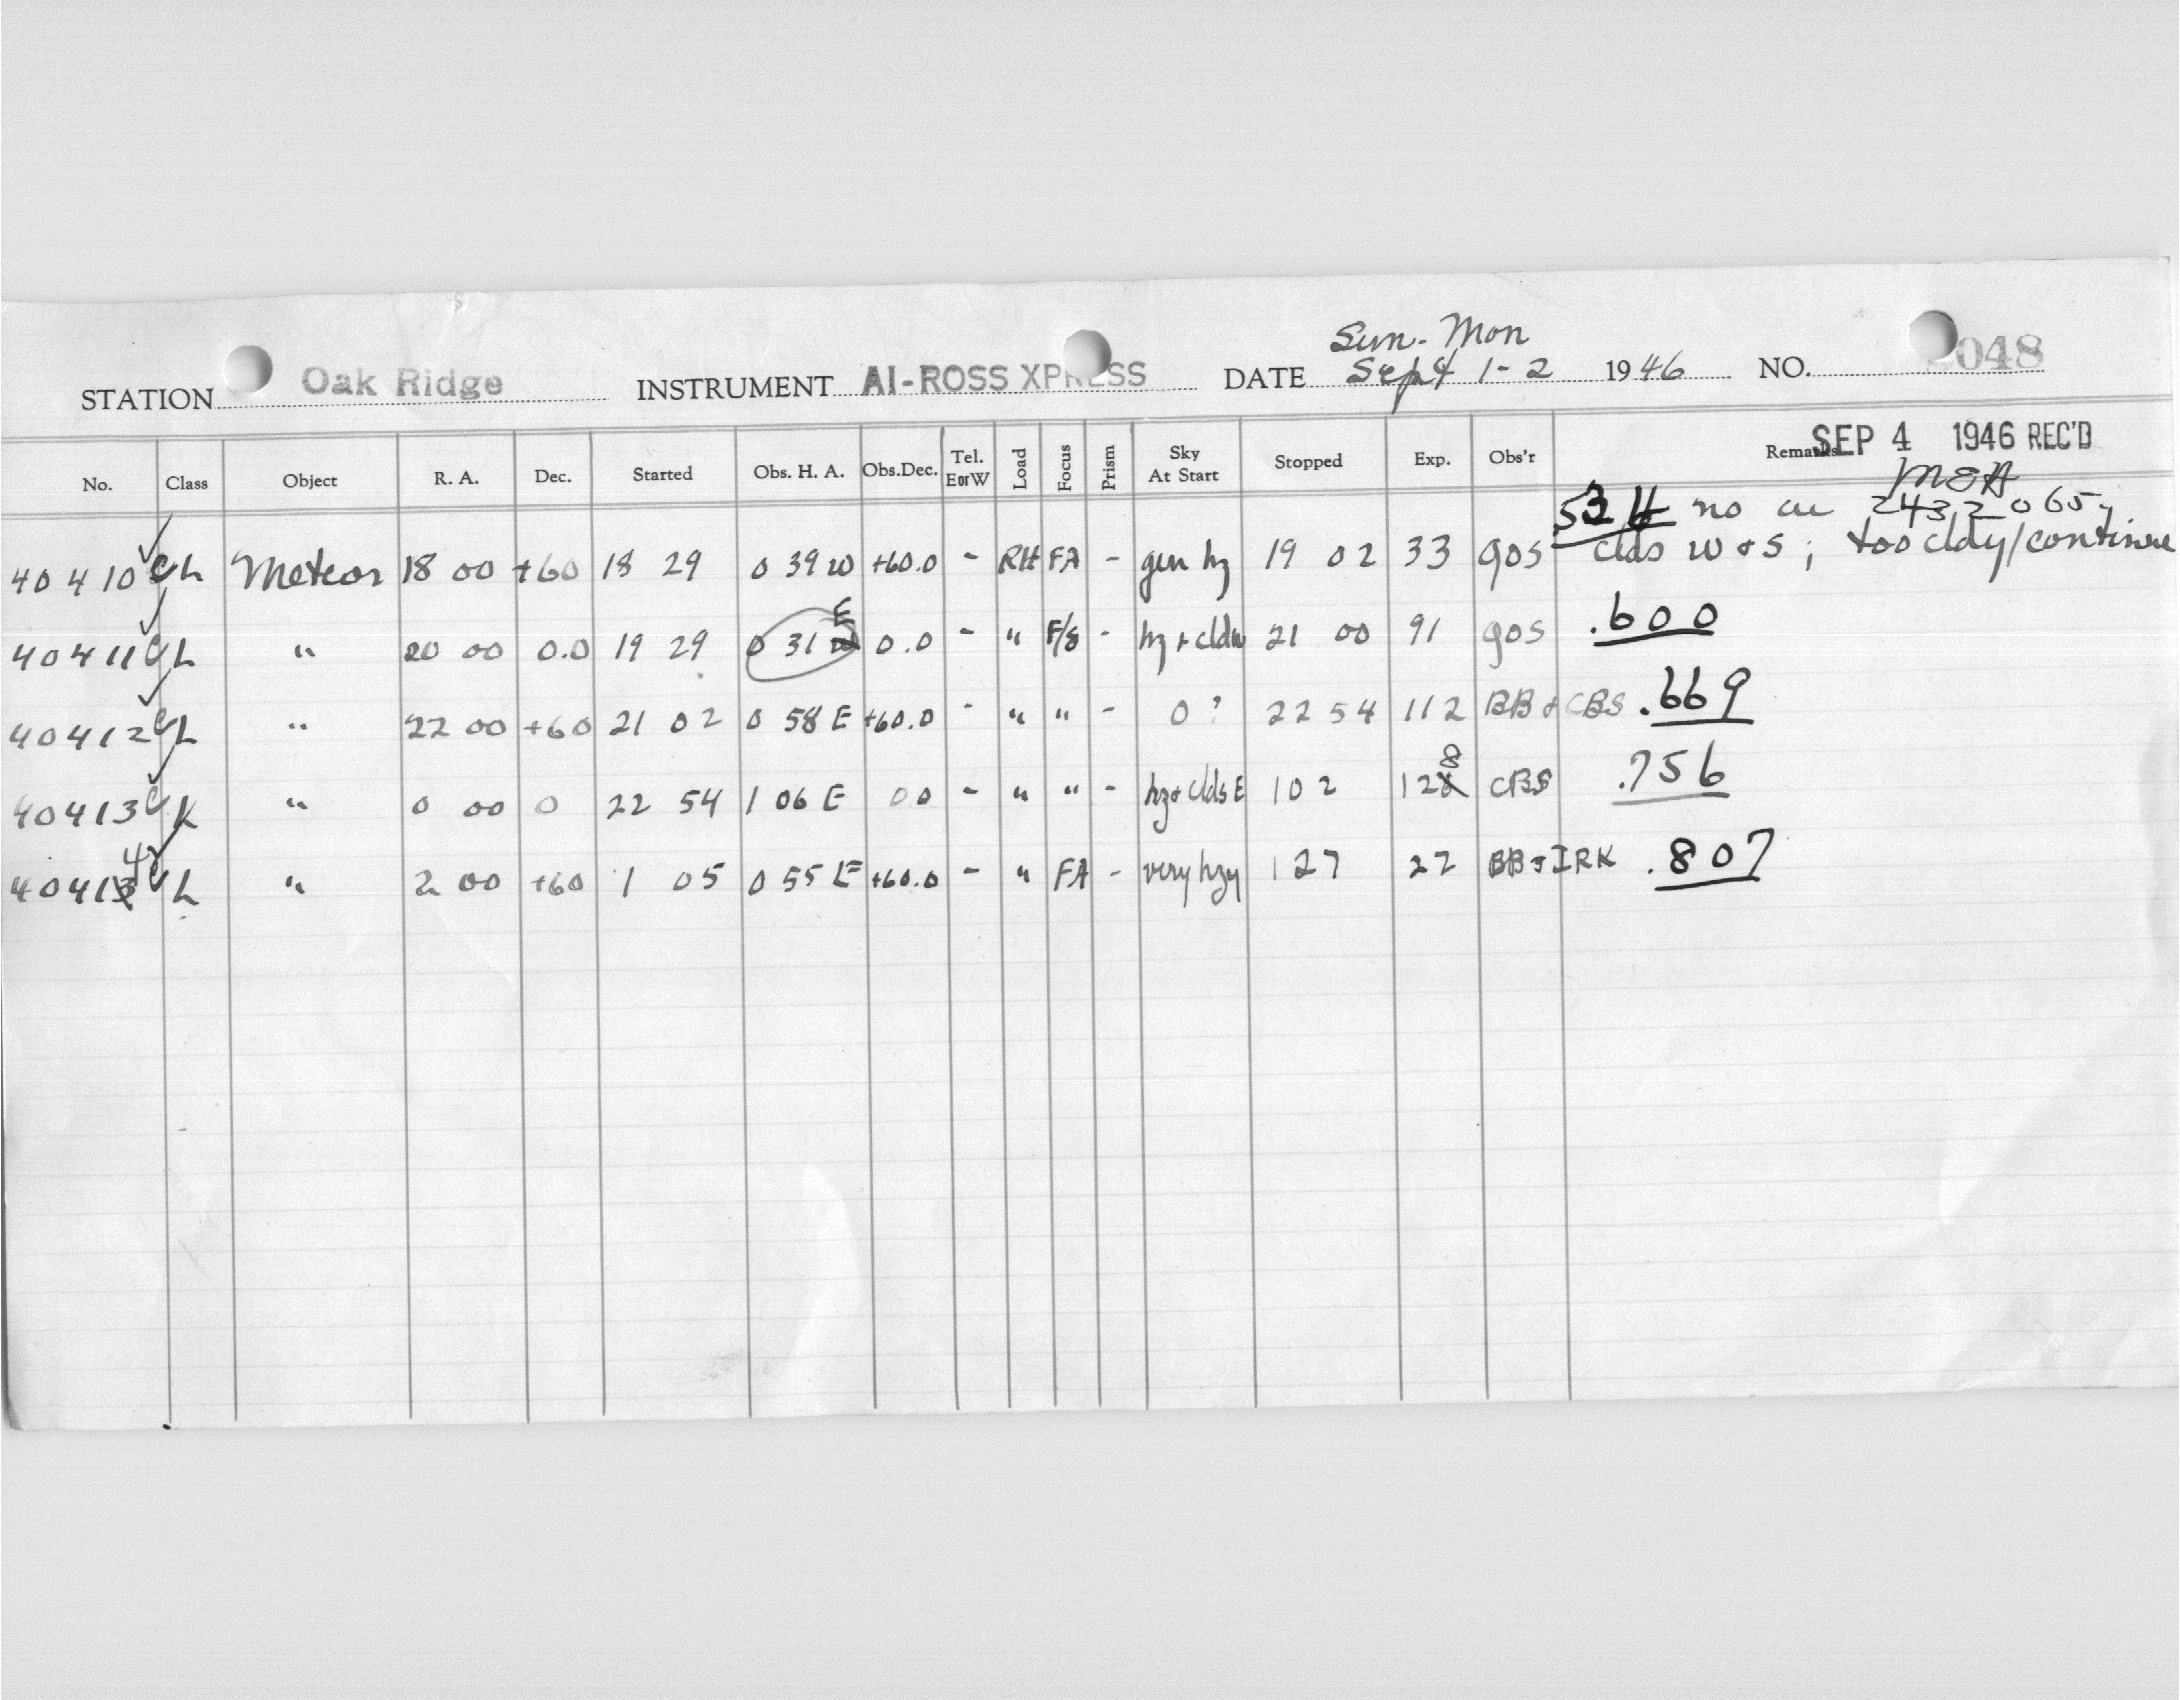 Sun. Mon
STATION Oak Ridge INSTRUMENT AI-ROSS XPRESS DATE Sept 1-2 1946 NO. 2048
SEP 4 1946 REC'D
No. Class Object R. A. Dec. Started Obs. H. A. Obs.Dec. Tel. E or W Load Focus Prism Sky At Start Stopped Exp. Obs'r Remarks
MEA
no 2432065.
40410 CL Meteor 18 00 +60 18 29 0 39 W +60.0 - RH FA - gen hz 19 02 33 gos clds W & S; too cldy/continue
40411 CL " 20 00 0.0 19 29 0 31 E 0.0 - " F/8 - hz + 21 00 91 gos .600
40412 CL " 22 00 +60 21 02 0 58 E +60.0 - " " - 0? 22 54 112 BB + CBS .669
40413 CK " 0 00 0 22 54 1 06 E 00 - " " - hz + clds E 1 02 128 CBS .756
40414 CL " 2 00 +60 1 05 0 55 E +60.0 - " FA - very hzy 1 27 22 BB + IRK .807